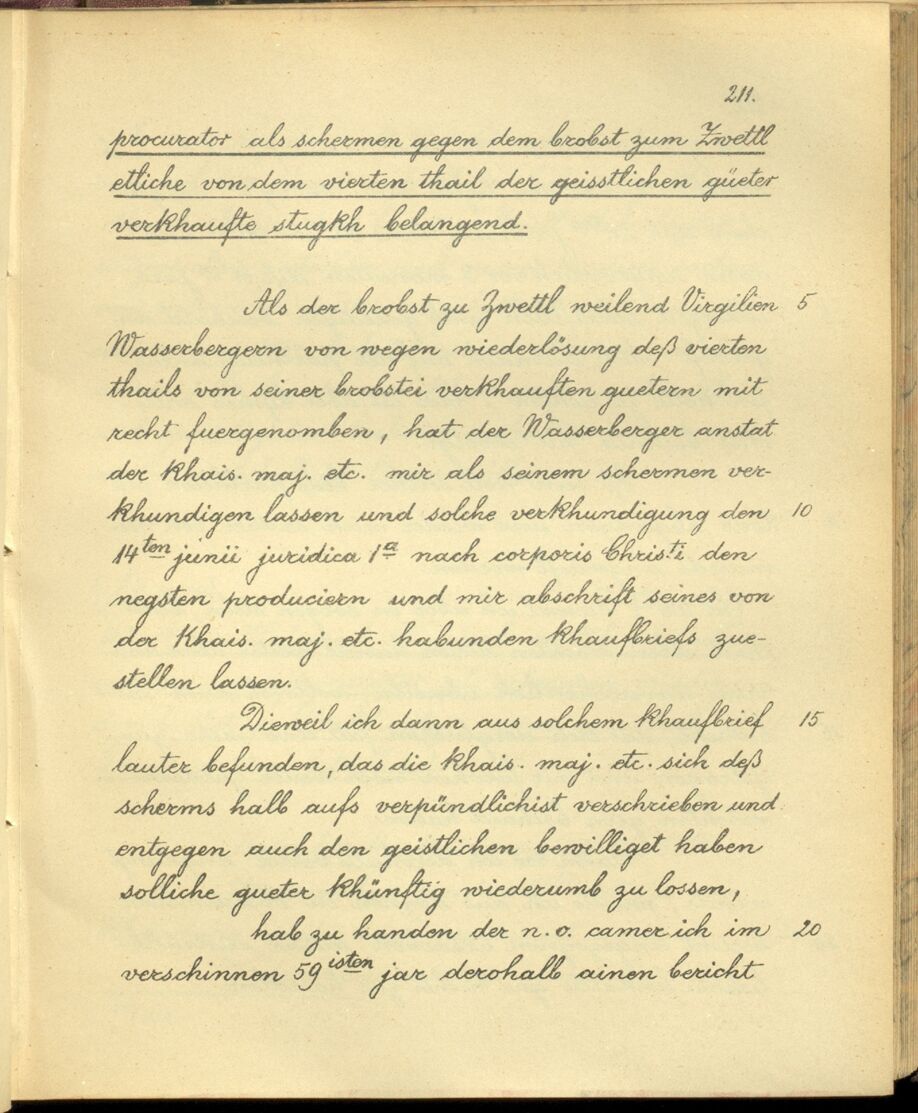 211.
procurator als schermen gegen dem brobst zum Zwettl
etliche von dem vierten thail der geisstlichen güeter
verkhaufte stugkh belangend.
Als der brobst zu Zwettl weilend Virgilien 5
Wasserbergern von wegen wiederlösung deß vierten
thails von seiner brobstei verkhauften guetern mit
recht fuergenomben, hat der Wasserberger anstat
der Khais. maj. etc. mir als seinem schermen ver-
khundigen lassen und solche verkhundigung den 10
14ten junii juridica 1a nach corporis Christi den
negsten produciern und mir abschrift seines von
der Khais. maj. etc. habunden khaufbriefs zue-
stellen lassen.
Dieweil ich dann aus solchem khaufbrief 15
lauter befunden, das die khais. maj. etc. sich deß
scherms halb aufs verpündlichist verschrieben und
entgegen auch den geistlichen bewilliget haben
solliche gueter khünftig wiederumb zu lossen,
hab zu handen der n. o. camer ich im 20
verschinnen 59isten jar derohalb ainen bericht